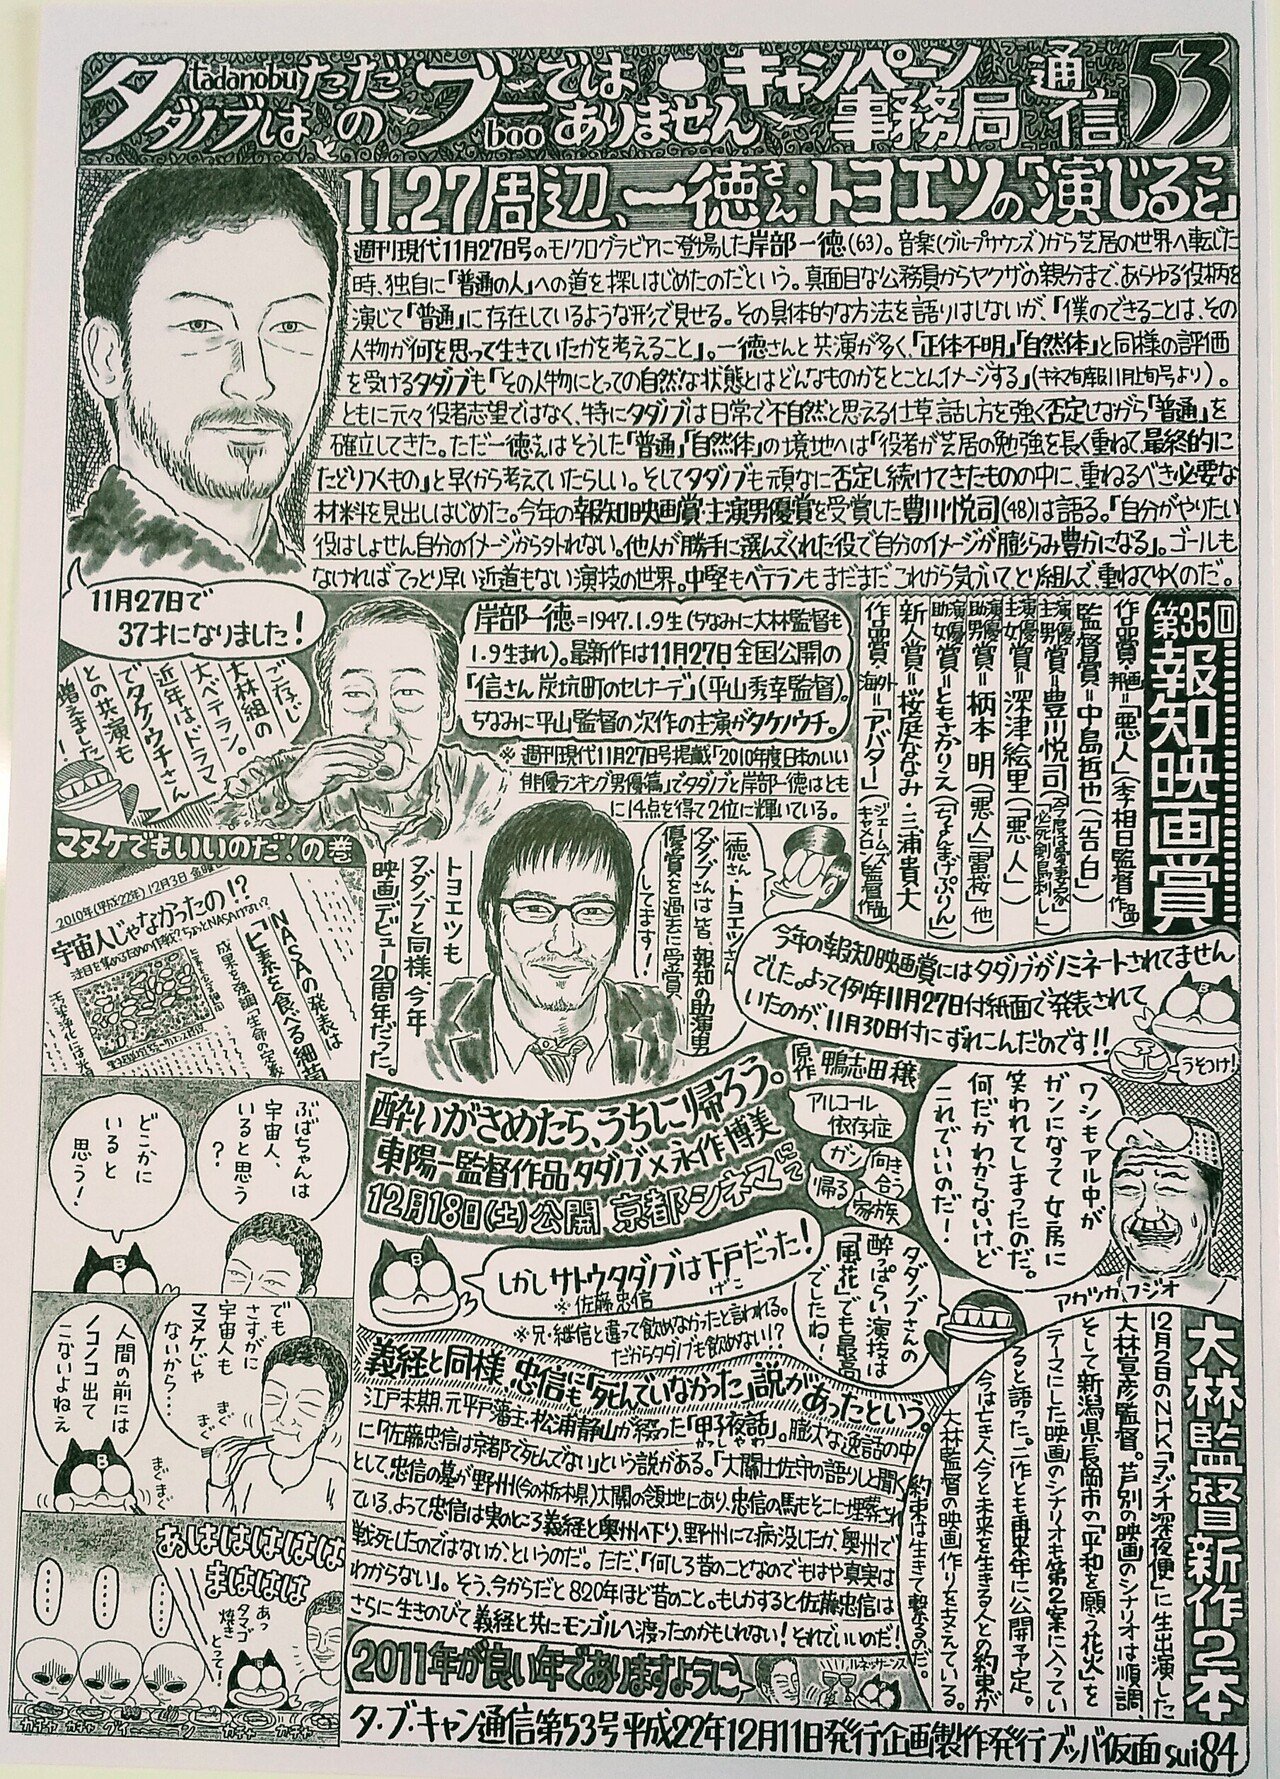 tadanobu
タダノブは
ただの
ブー
boo
ではありません
キャンペーン事務局
通信
53
11.27周辺、一徳さん・トヨエツの「演じること」
週刊現代11月27日号のモノクログラビアに登場した岸部一徳(63)。音楽(グループサウンズ)から芝居の世界へ転じた
時、独自に「普通の人」への道を探しはじめたのだという。真面目な公務員からヤクザの親分まで、あらゆる役柄を
演じて「普通」に存在しているような形で見せる。その具体的な方法を語りはしないが、「僕のできることは、その
人物が何を思って生きていたかを考えること」。一徳さんと共演が多く、「正体不明」「自然体」と同様の評価
を受けるタダノブも「その人物にとっての自然な状態とはどんなものかをとことんイメージする」(キネマ旬報11月上旬号より)。
ともに元々役者志望ではなく、特にタダノブは日常で不自然と思える仕草、話し方を強く否定しながら「普通」を
確立してきた。ただ一徳さんはそうした「普通」「自然体」の境地へは「役者が芝居の勉強を長く重ねて、最終的に
たどりつくもの」と早くから考えていたらしい。そしてタダノブも頑なに否定し続けてきたものの中に、重ねるべき必要な
材料を見出しはじめた。今年の報知映画賞・主演男優賞を受賞した豊川悦司(48)は語る。「自分がやりたい
役はしょせん自分のイメージから外れない。他人が勝手に選んでくれた役で自分のイメージが膨らみ豊かになる」。ゴールも
なければてっとり早い近道もない演技の世界。中堅もベテランもまだまだこれから気づいて、とり組んで、重ねてゆくのだ。
11月27日で
37才になりました!
ご存じ
大林組の
大ベテラン。
近年はドラマ
でタケノウチさん
との共演も
増えました!
岸部一徳=1947.1.9生(ちなみに大林監督も
1.9生まれ)。最新作は11月27日全国公開の
「信さん 炭坑町のセレナーデ」(平山秀幸監督)。
ちなみに平山監督の次作の主演がタケノウチ。
※週刊現代11月27日号掲載「2010年度日本のいい
俳優ランキング男優篇」でタダノブと岸部一徳はとも
に14点を得て2位に輝いている。
第35回報知映画賞
作品賞・邦画=「悪人」(李相日監督作品)
監督賞=中島哲也(「告白」)
主演男優賞=豊川悦司(「今度は愛妻家」「必死剣鳥刺し」)
主演女優賞=深津絵里(「悪人」)
助演男優賞=柄本明(「悪人」「雷桜」他)
助演女優賞=ともさかりえ(「ちょんまげぷりん」)
新人賞=桜庭ななみ・三浦貴大
作品賞・海外=「アバター」(ジェームズ・キャメロン監督作品)
一徳さん・トヨエツさん・
タダノブさんは皆、報知の助演男
優賞を過去に受賞
してます!
トヨエツも
タダノブと同様、今年
映画デビュー20周年だった。
今年の報知映画賞にはタダノブがノミネートされてません
でした。よって例年11月27日付紙面で発表されて
いたのが、11月30日付にずれこんだのです!!
うそつけ!
マヌケでもいいのだ!の巻
2010年(平成22年)12月3日 金曜
宇宙人じゃなかったの!?
注目を集めるための作戦?ちゃっとNASAけない?
NASAの発表は
「ヒ素を食べる細菌」
成果を強調「生命の定義
ぶばちゃんは
宇宙人、
いると思う
?
どこかに
いると
思う!
でも
さすがに
宇宙人も
マヌケじゃ
ないから…
まぐ
まぐ
人間の前には
ノコノコ出て
こないよねえ
まぐ
まぐ
おしはははははは
まはははは
あっ
タマゴ
焼き
とって!
……
……
……
ガチャ ガチャ グイーン ガチャ ガチャ
酔いがさめたら、うちに帰ろう。
原作 鴨志田穣
東陽一監督作品 タダノブ×永作博美
12月18日(土)公開 京都シネマにて
アルコール
依存症
ガン
向き合う
帰る
家族
ワシもアル中が
ガンになって女房に
笑われてしまったのだ。
何だかわからないけど
これでいいのだ!
アカツカフジオ
しかしサトウタダノブは下戸だった!
げこ
※佐藤忠信
※兄・継信と違って飲めなかったと言われる。
だからタダノブも飲めない!?
タダノブさんの
酔っぱらい演技は
「風花」でも最高
でしたね!
義経と同様、忠信にも「死んでいなかった」説があったという。
江戸末期、元平戸藩主・松浦静山が綴った「甲子夜話」。膨大な逸話の中
かっしやわ
に「佐藤忠信は京都で死んでない」という説がある。「大関土佐守の語りしと聞く
として、忠信の墓が野州(今の栃木県)大関の領地にあり、忠信の馬もそこに埋葬され
ている。よって忠信は実のところ義経と奥州へ下り、野州にて病没したか、奥州で
戦死したのではないか、というのだ。ただ、「何しろ昔のことなのでもはや真実は
わからない」。そう、今からだと820年ほど昔のこと。もしかすると佐藤忠信は
さらに生きのびて義経と共にモンゴルへ渡ったのかもしれない!それでいいのだ!
大林監督新作2本
12月2日のNHK「ラジオ深夜便」に生出演した
大林宣彦監督。芦別の映画のシナリオは順調、
そして新潟県長岡市の「平和を願う花火」を
テーマにした映画のシナリオも第2案に入ってい
ると語った。二作とも再来年に公開予定。
今は亡き人、今と未来を生きる人との約束が
大林監督の映画作りを支えている。
約束は生きて繋るのだ。
2011年が良い年でありますように
ルネッサーンス
タ・ブ・キャン通信第53号平成22年12月11日発行企画製作発行ブッバ仮面 sui84